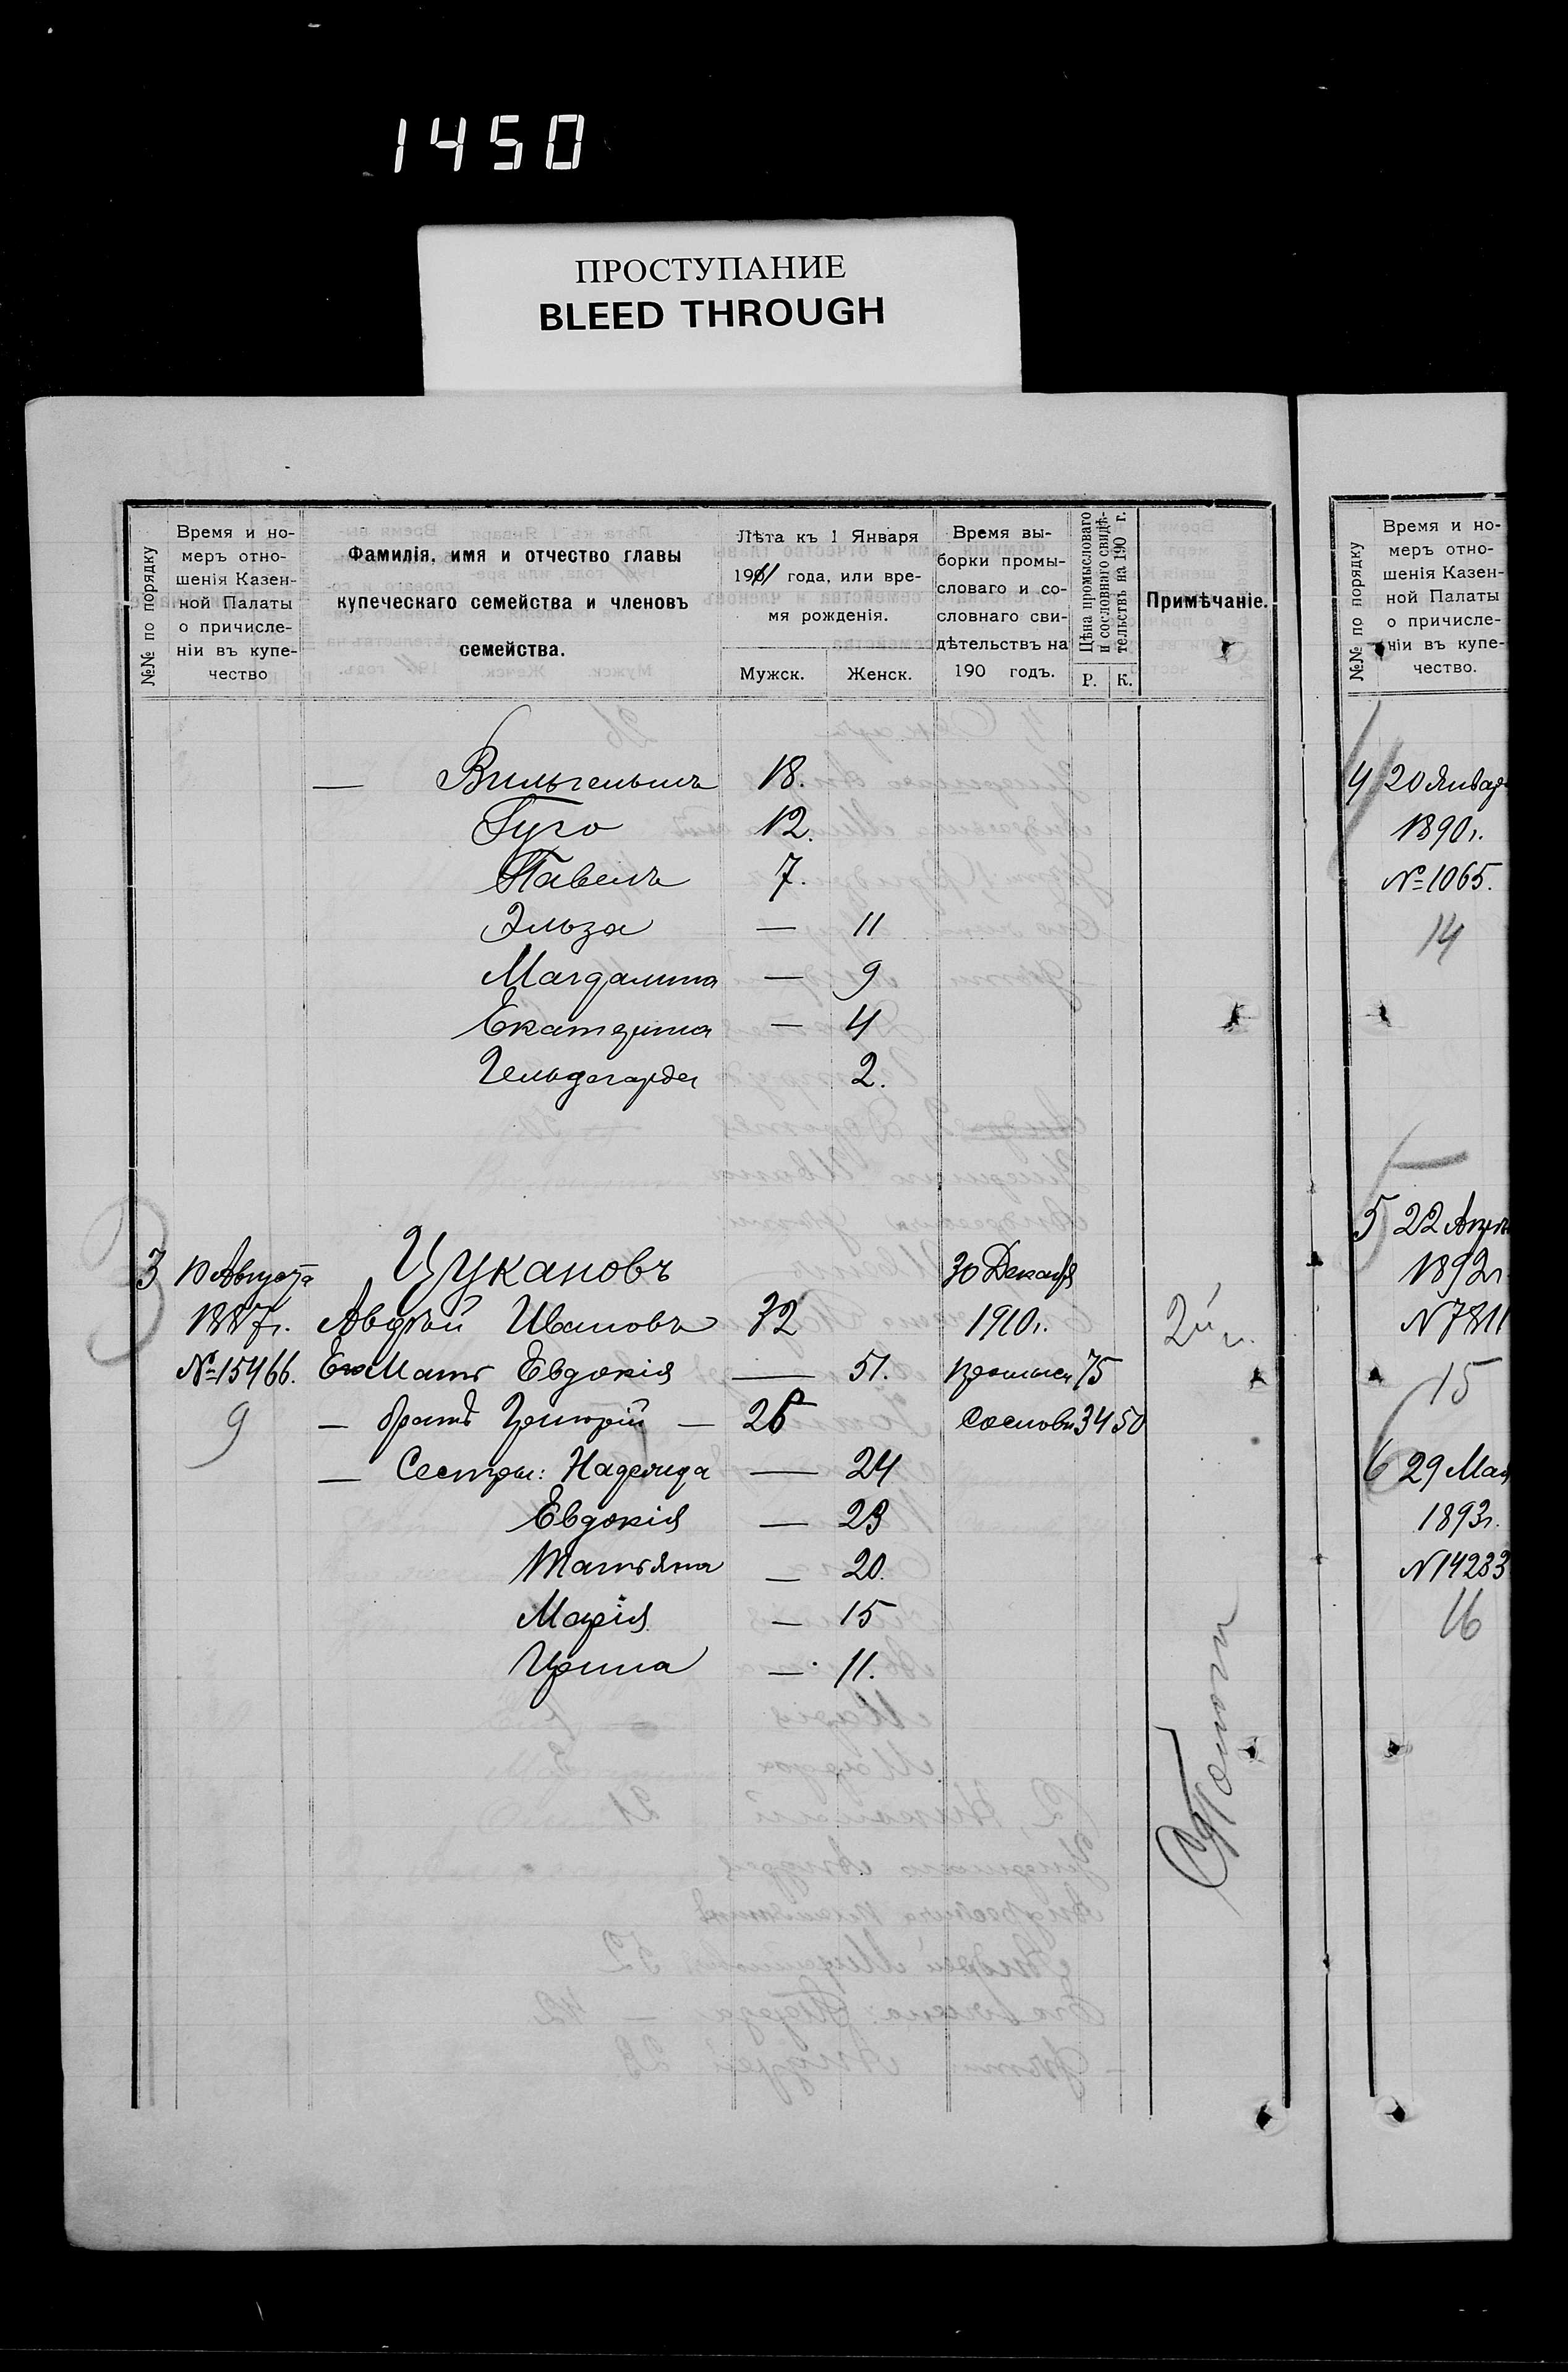 1450
ПРОСТУПАНИЕ
BLEED THROUGH
№№ по порядку
Время и но-
меръ отно-
шенія Казен-
ной Палаты
о причисле-
ніи въ купе-
чество
Фамилія, имя и отчество главы
купеческаго семейства и членовъ
семейства.
Лѣта къ 1 Января
1911 года, или вре-
мя рожденія.
Мужск. Женск.
Время вы-
борки промы-
словаго и со-
словнаго сви-
дѣтельствъ на
190 годъ.
Цѣна промысловаго
и сословнаго свидѣ-
тельствъ на 190 г.
Р. К.
Примѣчаніе.
— Вильгельмъ 18.
Гуго 12.
Павелъ 7.
Эльза — 11
Магдалина — 9
Екатерина — 4
Гельдегарда 2.
3 10 Августа Цукановъ 30 Декабря
1887г. Авдѣй Ивановъ 32 1910г. 2й г.
№15466. Его Мать Евдокія — 51. промысл 75
9 — братъ Григорій — 26 сословн 34 50
— Сестры: Надежда — 24
Евдокія — 23
Татьяна — 20.
Марія — 15
Ирина — 11.
№№ по порядку
Время и но-
меръ отно-
шенія Казен-
ной Палаты
о причисле-
ніи въ купе-
чество.
4 20 Январ
1890г.
№1065.
14
5 22 Апрѣл
1892г.
N7811
15
6 29 Мая
1893г.
N14283
16